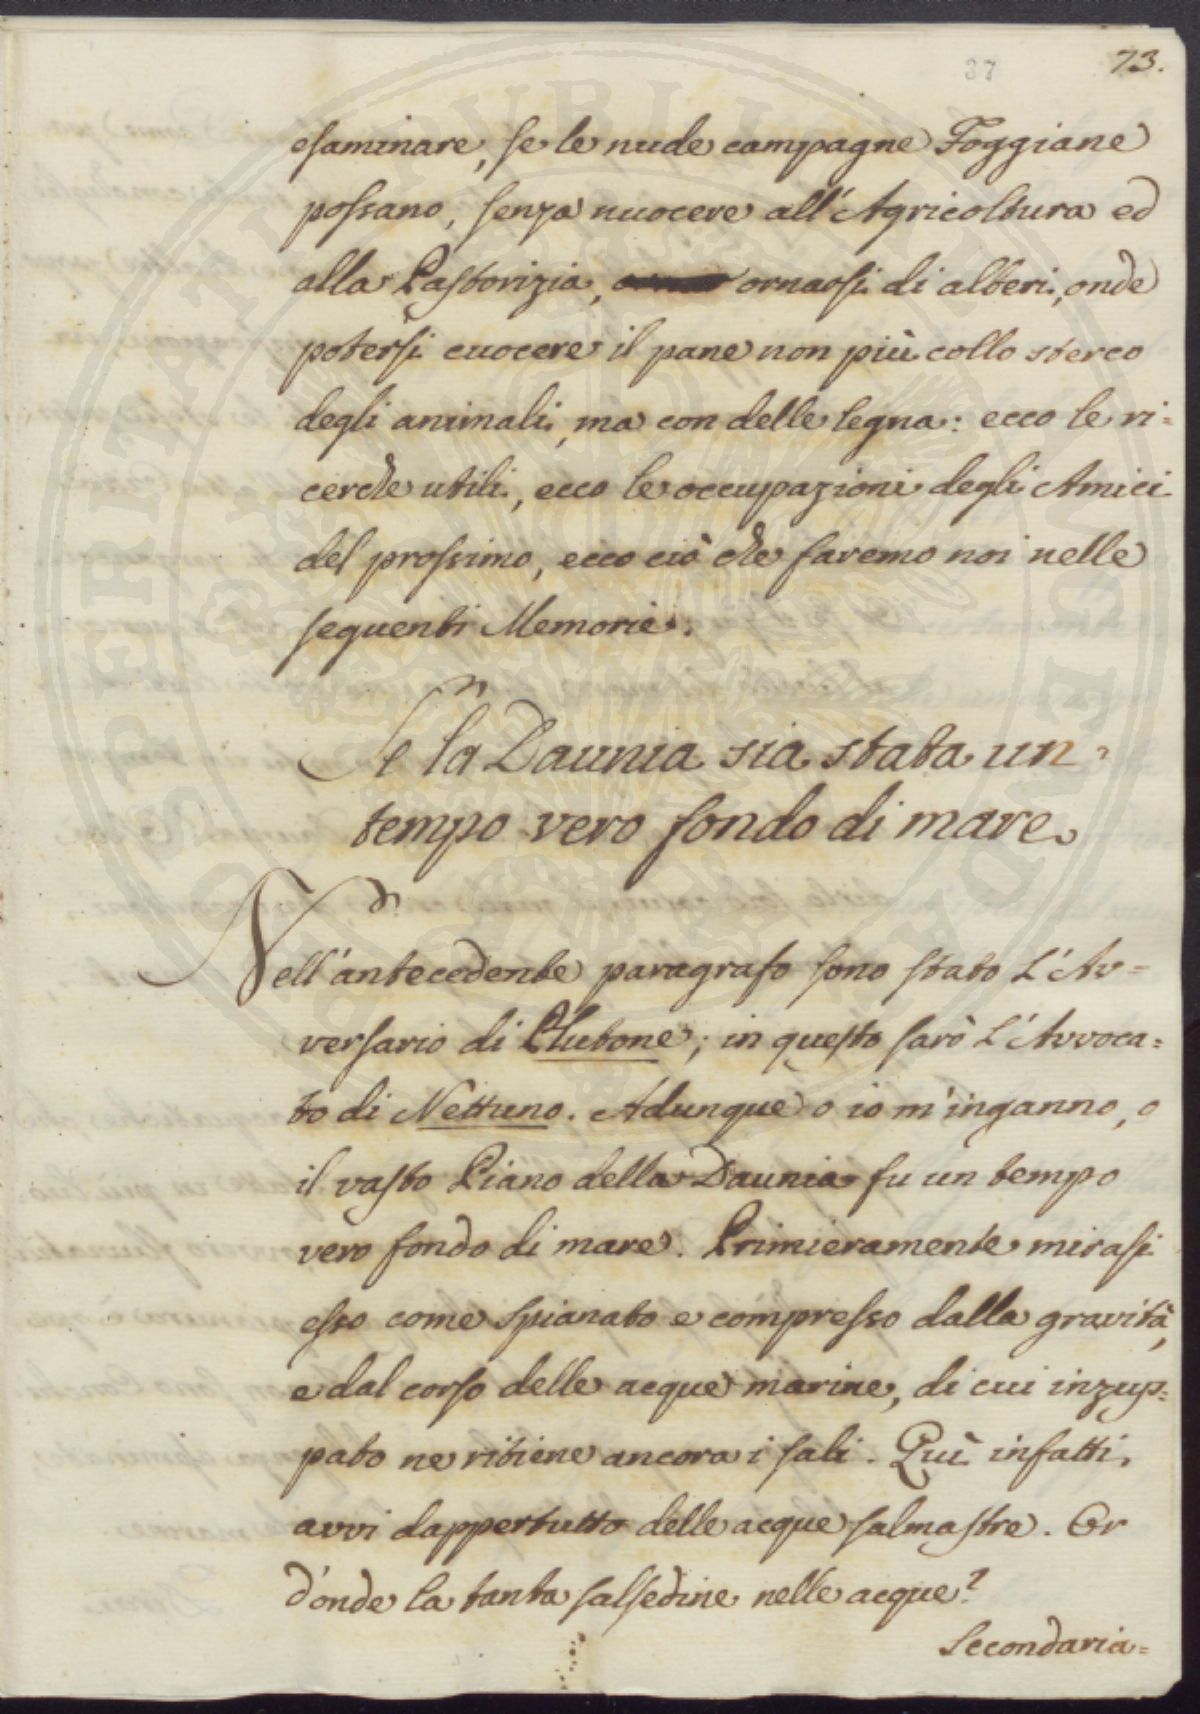 37 73.
esaminare, se le nude campagne Foggiane
possano, senza nuocere all'Agricoltura ed
alla Pastorizia, ornarsi di alberi, onde
potersi cuocere il pane non più collo sterco
degli animali, ma con delle legna: ecco le ri=
cerche utili, ecco le occupazioni degli Amici
del prossimo, ecco ciò che faremo noi nelle
seguenti Memorie.
Se la Daunia sia stata un=
tempo vero fondo di mare
Nell'antecedente paragrafo sono stato l'Av=
versario di Plutone; in questo sarò l'Avvoca=
to di Nettuno. Adunque o io m'inganno, o
il vasto Piano della Daunia fu un tempo
vero fondo di mare. Primieramente mirasi
esso come spianato e compresso dalla gravità,
e dal corso delle acque marine, di cui inzup=
pato ne ritiene ancora i sali. Quì infatti
avvi dappertutto delle acque salmastre. Or
d'onde la tanta salsedine nelle acque?
Secondaria=